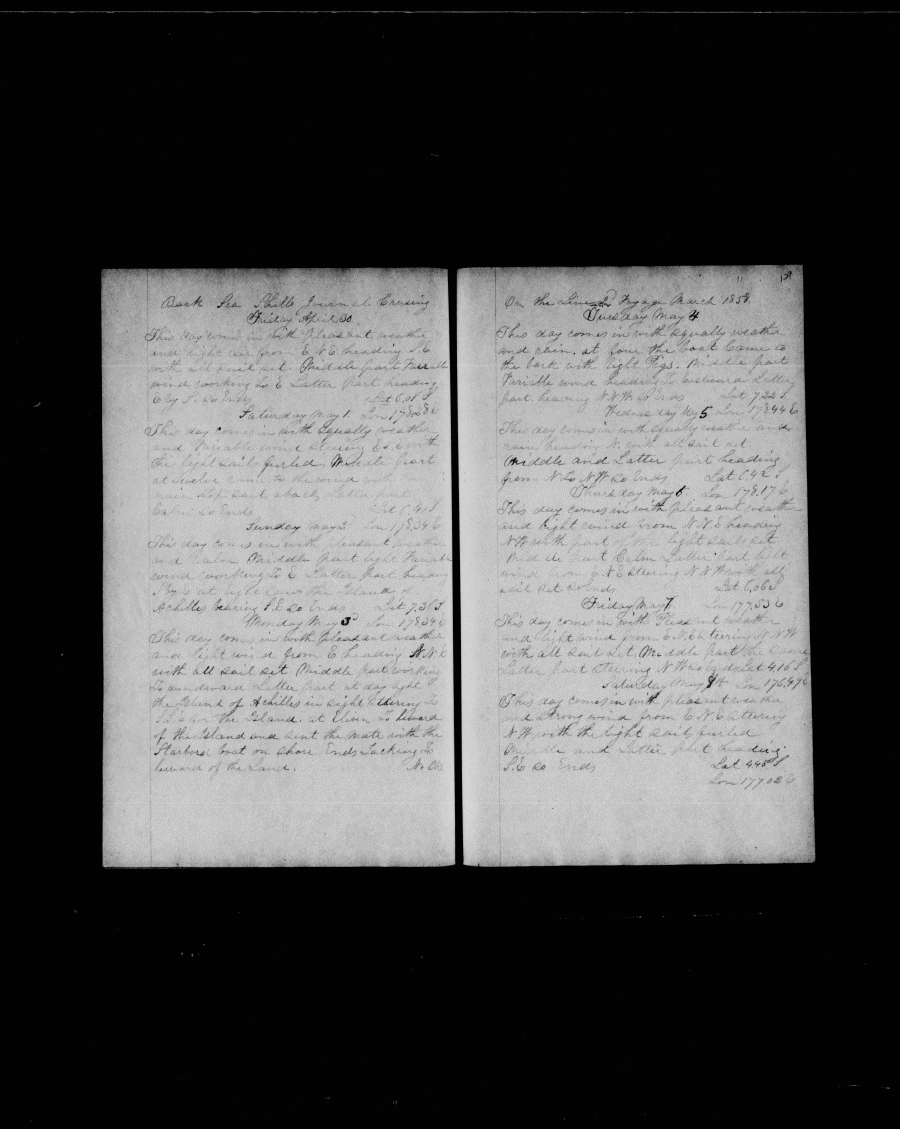 Bark Sea Shell Journal Crusing
Friday April 30
This day comes in with pleasant weather
and light air from E N E heading S.E
with all sail set. Middle part Variable
wind working to E Latter part heading
E by S. So Ends Lat 6,08 S
Saturday May 1. Lon 178.28 E
This day comes in with squally weather
and Variable wind steering E S. E with
the light sails furled. Middle part
at twelve came to the wind with
main top sail aback Latter part
Calm So Ends Lat 6,41 S
Sunday May 2 Lon 178,34 E
This day comes in with pleasant weather
and Calm Middle part light Variable
wind working to E Latter part heading
at light saw the Island of
Achilles bearing S.E So Ends Lat 7,36 S
Monday May 3 Lon 178,34 E
This day comes in with pleasant weather
and light wind from E heading N. N. E
with all sail set Middle part working
to windward Latter part at day light
the Island of Achilles in sight steering to
for the Island. at Eleven to leward
of the Island and sent the mate with the
Starbord boat on shore Ends tacking to
leward of the land. No Obs
On the Line Voyage March 1858.
Tuesday May 4
This day comes in with squally weather
and rain, at four the boat came to
the bark with Eight Pigs. Middle part
Variable wind heading to Eastward Latter
part heading N. N W. So Ends Lat 7,22 S
Wednesday May 5 Lon 178,44 E
This day comes in with squally weather and
rain heading N. with all sail set
Middle and Latter part heading
from N to N W So Ends Lat 6.42 S
Thursday May 6. Lon 178.17 E
This day comes in with pleasant weather
and light wind from N. N. E heading
N W with part of the light sails set
Middle part Calm Latter part light
wind from E N E steering N N W with all
sail set So Ends Lat 6,06 S
Friday May 7 Lon 177,53 E
This day comes in with Pleasant weather
and light wind from E. N. E steering N. N. W
with all sail set. Middle part the same
Latter part steering N W So Ends Lat 4,16 S
Saturday May 8 Lon 176,47 E
This day comes in with pleasant weather
and strong wind from E N E steering
N W with the light sails furled
Middle and Latter part heading
S.E So Ends Lat 4.45 S
Lon 177 02 E